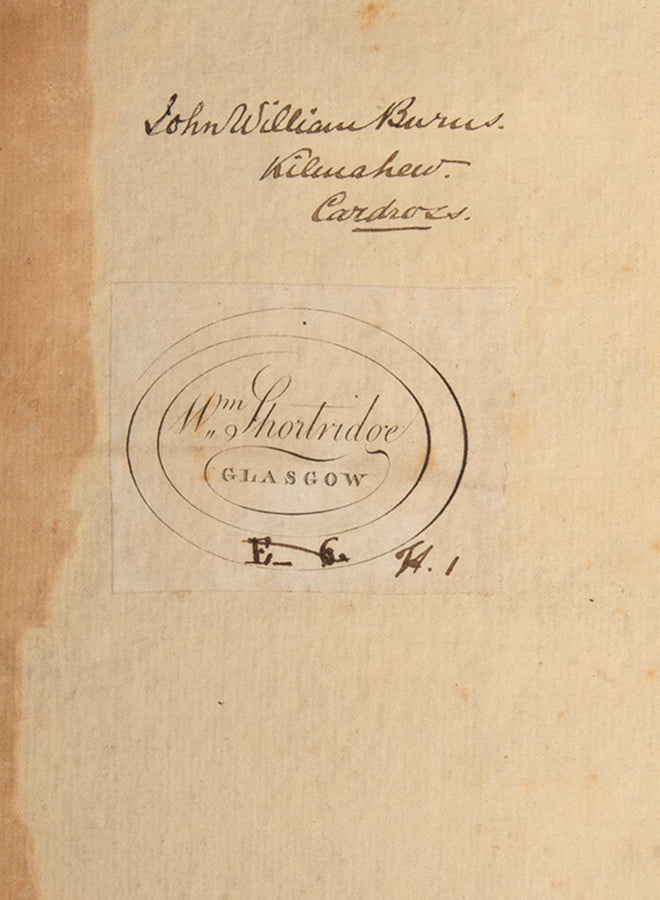 John William Burns.
Kilmahew.
Cardross.
Wm Shortridge
GLASGOW
E_ 6.
H. 1